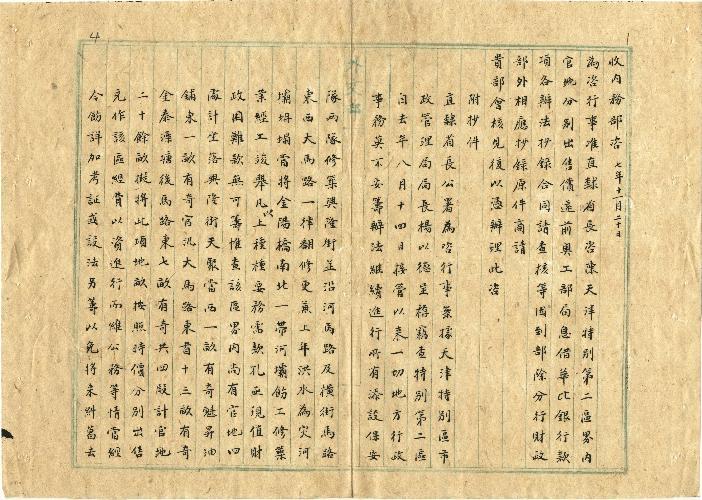 收內務部咨 七年十一月二十日
為咨行事准直隸省長咨陳天津特別第二區界內
官地分別出售償還前奧工部局息借華比銀行款
項各辦法抄錄合同請查核等因到部除分行財政
部外相應抄錄原件商請
貴部會核見復以憑辦理此咨
附抄件
直隸省長公署為咨行事案據天津特別區市
政管理局局長楊以德呈稱竊查特別第二區
自去年八月十四日接管以來一切地方行政
事務莫不妥籌辦法繼續進行所有添設保安
隊兩隊修築興隆街並沿河馬路及橫街馬路
東西大馬路一律翻修更兼上年洪水為災河
壩坍塌當將金陽橋南北一帶河壩飭工修築
業經工竣舉凡以上種種要務需款孔亟現值財
政困難款無可籌惟查該區界內尚有官地四
處計坐落興隆街天聚當西一畝有奇魁昇油
舖東一畝有奇官汛大馬路東書十三畝有奇
金泰潭塘後馬路東七畝有奇共四段計官地
二十餘畝擬將此項地畝按照時價分別出售
充作該區經費以資進行而維公務等情當經
令飭詳加考証或設法另籌以免將來糾葛去